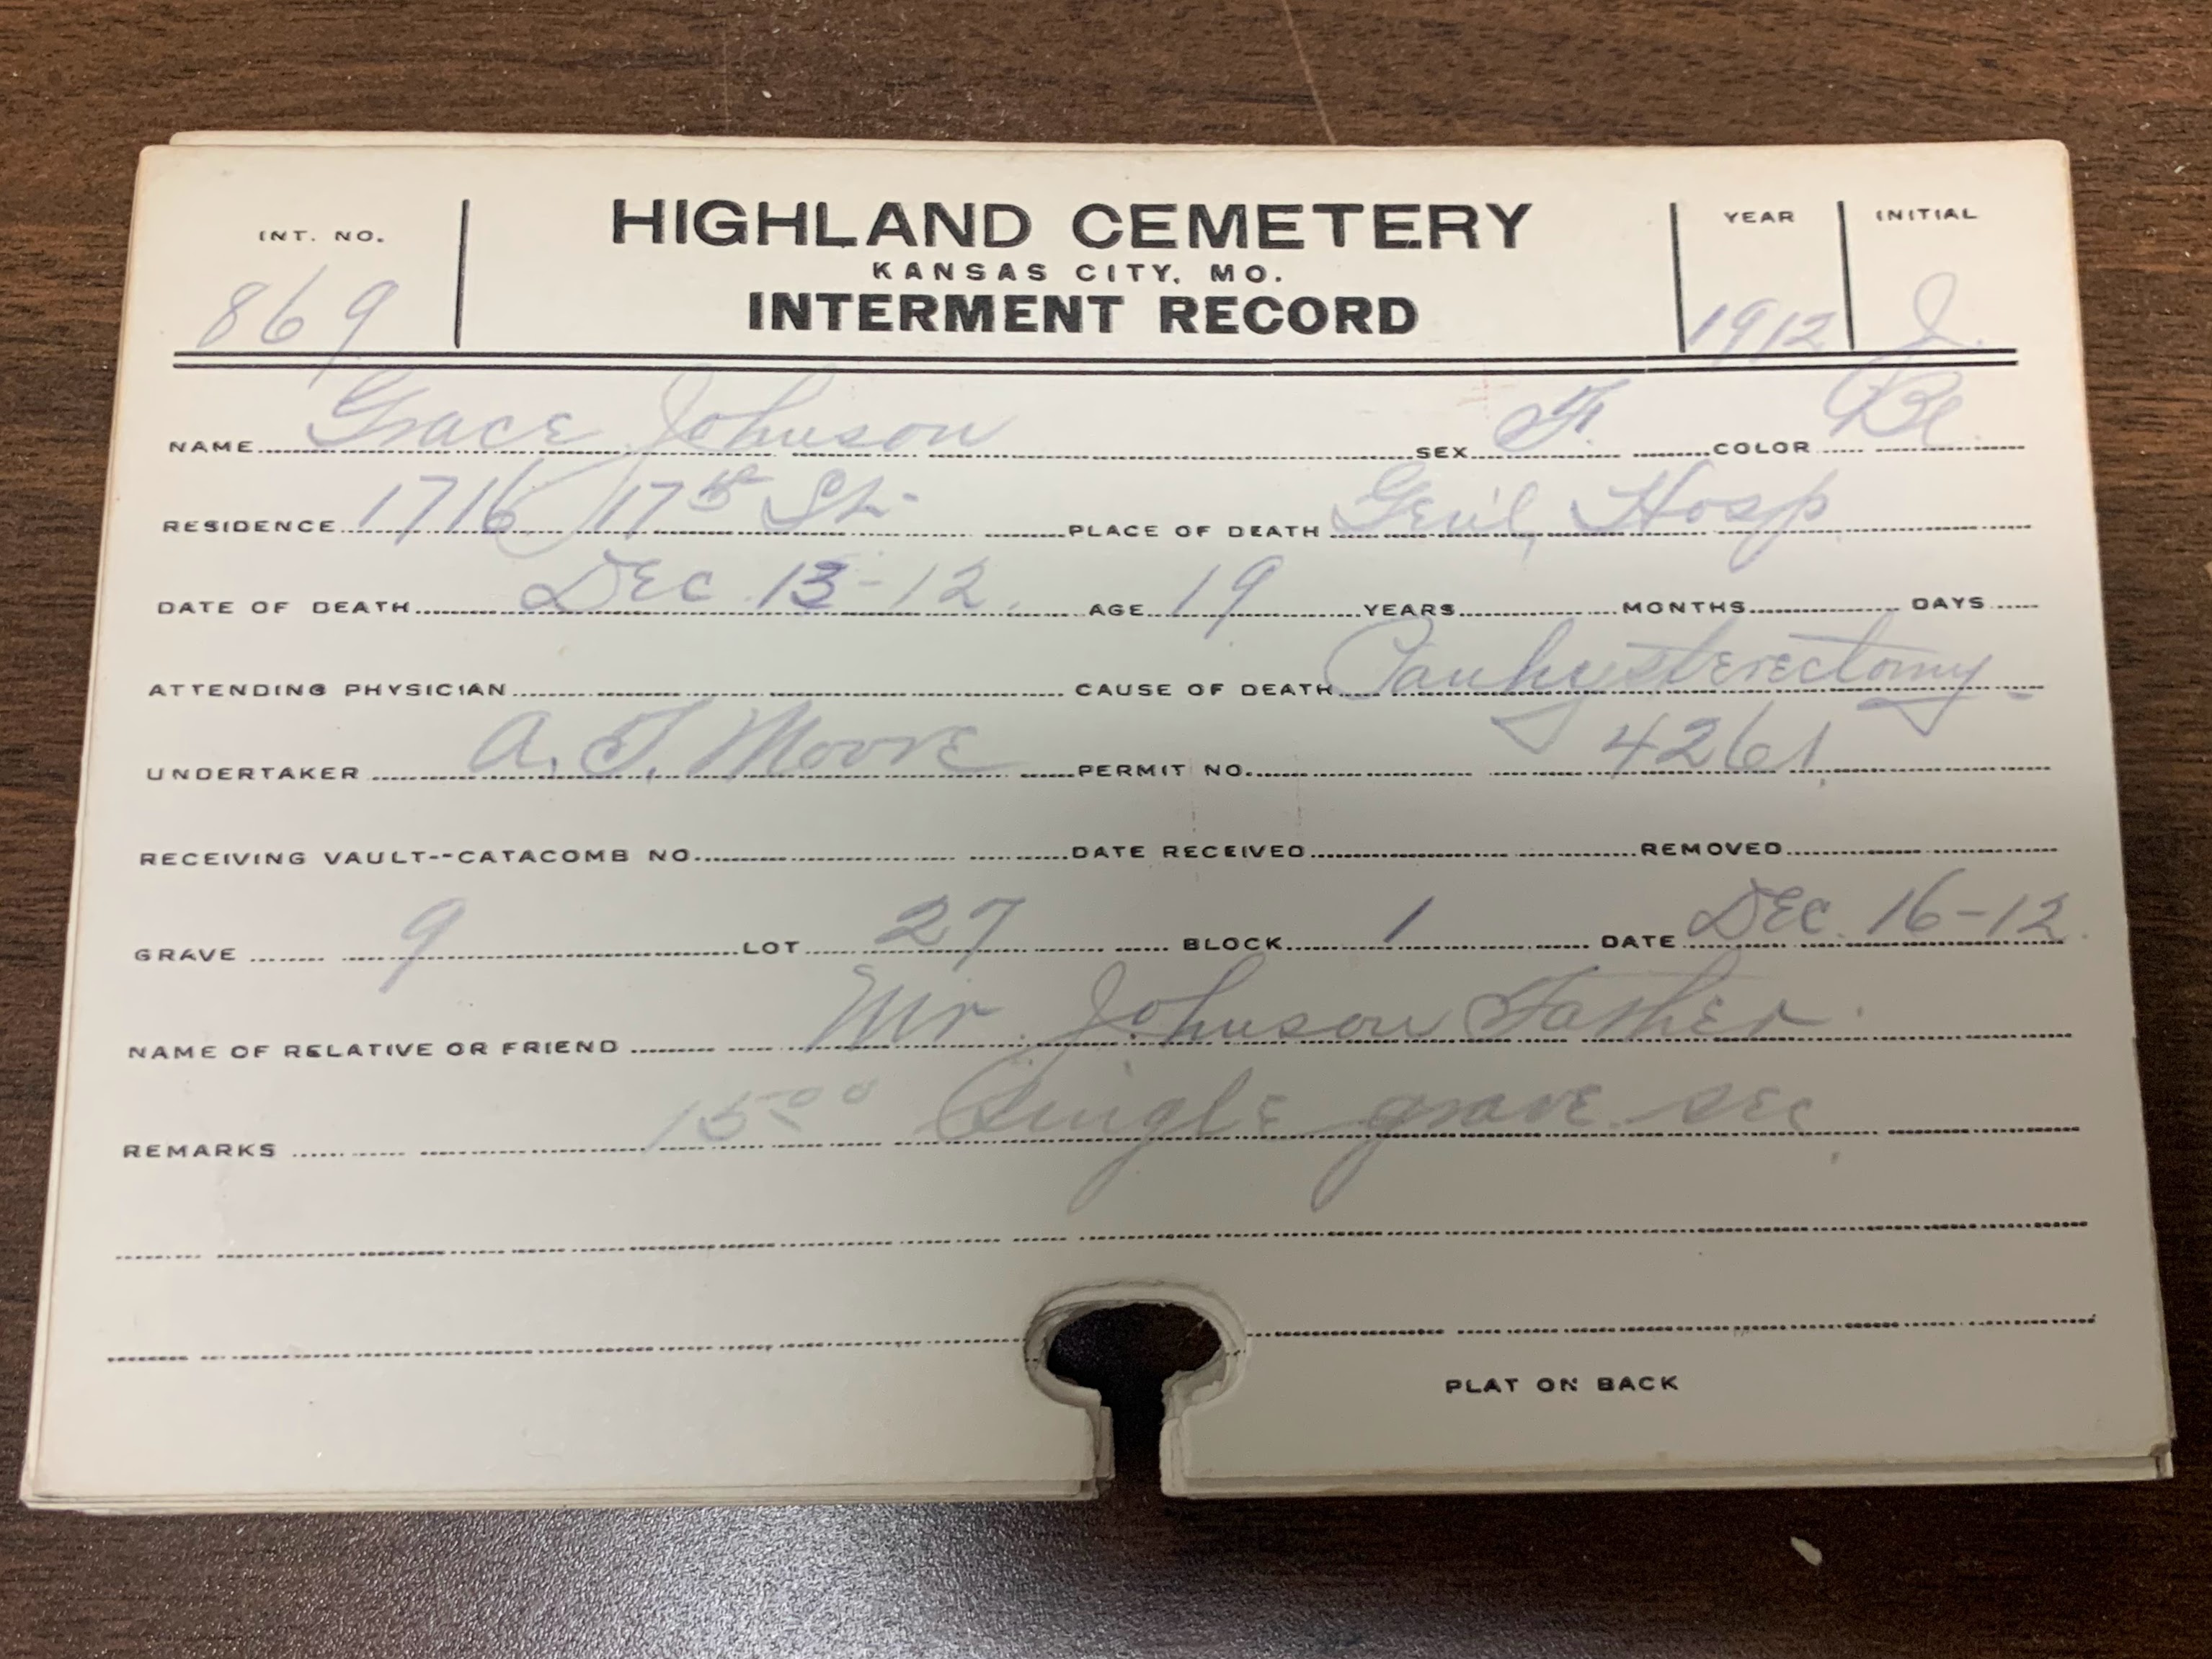 INT. NO. HIGHLAND CEMETERY YEAR INITIAL
KANSAS CITY, MO.
869 INTERMENT RECORD 1912 J.
NAME Grace Johnson SEX F. COLOR Bl.
RESIDENCE 1716 17th St. PLACE OF DEATH Gen'l Hosp
DATE OF DEATH Dec. 13-12. AGE 19 YEARS MONTHS DAYS
ATTENDING PHYSICIAN CAUSE OF DEATH Panhysterectomy
UNDERTAKER A. T. Moore PERMIT NO. 4261.
RECEIVING VAULT--CATACOMB NO. DATE RECEIVED REMOVED
GRAVE 9 LOT 27 BLOCK 1 DATE Dec. 16-12.
NAME OF RELATIVE OR FRIEND Mr. Johnson Father.
REMARKS 15 00 Single grave sec.
PLAT ON BACK